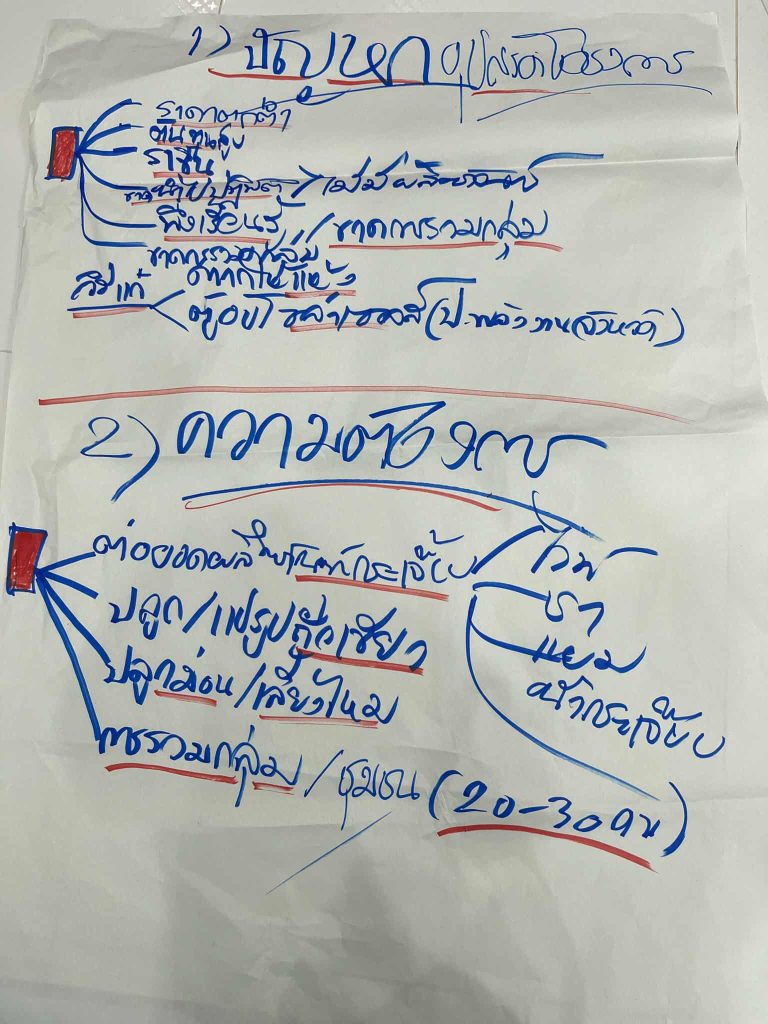 1) ปัญหา อุปสรรคโครงการ
ราคาตกต่ำ
ต้นทุนสูง
ราชื้น
ขาด / ไม่มีผลิตภัณฑ์
พึ่งเรียนรู้ / ขาดการรวมกลุ่ม
ขาดการรวมกลุ่ม
วิธีแก้ ตากให้แห้ง
ตู้อบโซล่าเซลล์ (ป.พลังงานจังหวัด)
2) ความต้องการ
ต่อยอดผลิตภัณฑ์กระเจี๊ยบ / ไวน์
ปลูก/แปรรูปถั่วเขียว ชา
ปลูกม่อน/เลี้ยงไหม แยม
น้ำกระเจี๊ยบ
การรวมกลุ่ม / ชุมชน (20-30 คน)